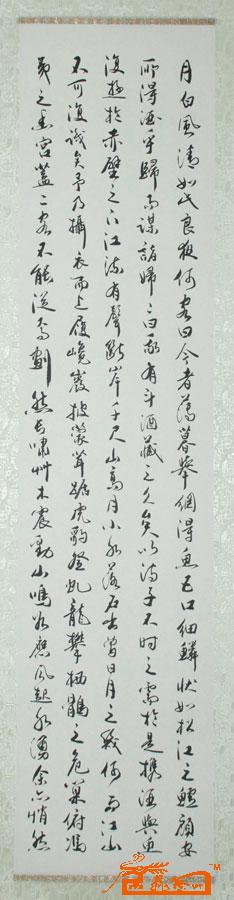 月白风清如此良夜何客曰今者薄暮举網得鱼巨口细鳞状如松江之鲈顾安
所得酒乎归而谋诸妇妇曰我有斗酒藏之久矣以待子不时之需於是携酒与鱼
復遊於赤壁之下江流有聲断岸千尺山高月小水落石出曾日月之幾何而江山
不可復识矣予乃攝衣而上履巉巖披蒙茸踞虎豹登虬龍攀栖鶻之危巢俯馮
夷之幽宫蓋二客不能從焉劃然长啸艸木震動山鳴谷應风起水湧余亦悄然